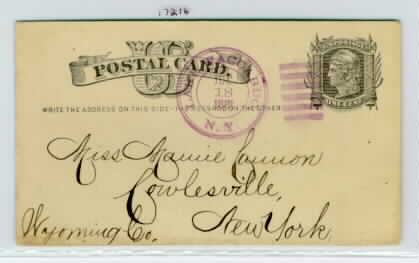 17218
POSTAL CARD.
WRITE THE ADDRESS ON THIS SIDE-THE MESSAGE ON THE OTHER
18
N.Y.
ONE CENT
Miss Mamie Cannon
Cowlesville,
Wyoming Co. New York